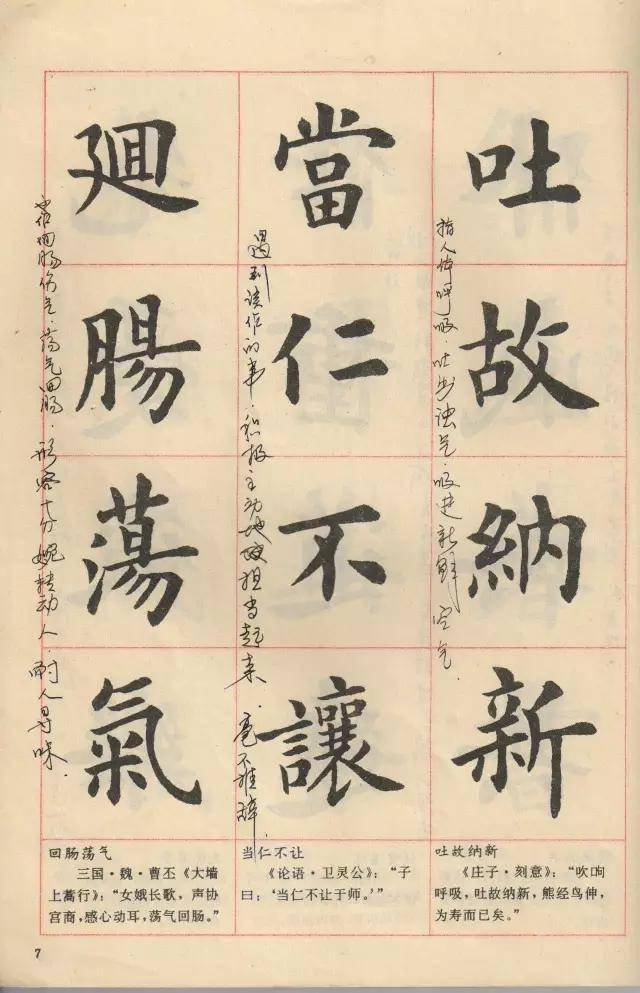 吐故納新
指人体呼吸.吐出浊气.吸进新鲜空气.
當仁不讓
遇到该作的事.积极主动地担当起来.毫不推辞.
廻腸蕩氣
常作回肠伤气.荡气回肠.形容十分婉转动人.耐人寻味.
吐故纳新
《庄子·刻意》:“吹呴
呼吸,吐故纳新,熊经鸟伸,
为寿而已矣。”
当仁不让
《论语·卫灵公》:“子
曰:‘当仁不让于师。’”
回肠荡气
三国·魏·曹丕《大墙
上蒿行》:“女娥长歌,声协
宫商,感心动耳,荡气回肠。”
7